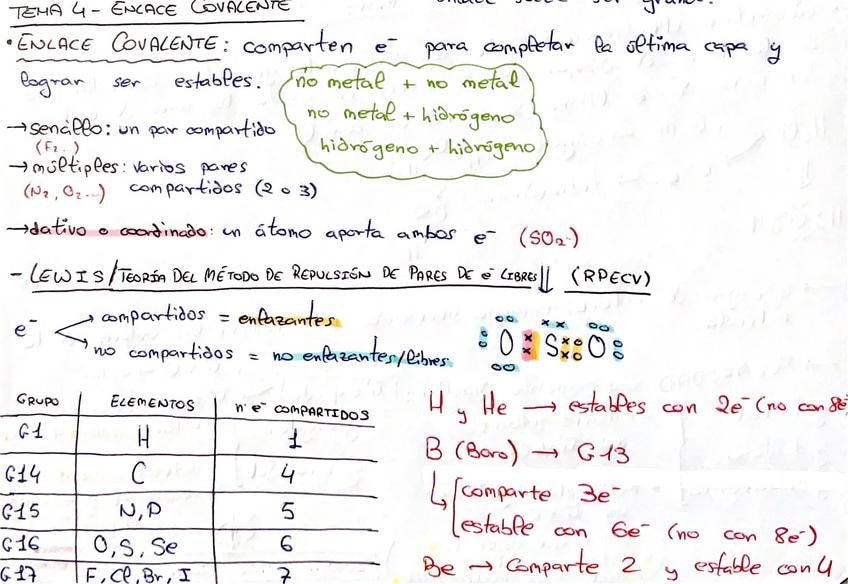 TEMA 4 - ENLACE COVALENTE
• ENLACE COVALENTE: comparten e⁻ para completar la última capa y
lograr ser estables.
no metal + no metal
no metal + hidrógeno
hidrógeno + hidrógeno
→ sencillo: un par compartido
(F₂..)
→ múltiples: varios pares
(N₂, O₂...) compartidos (2 o 3)
→ dativo o coordinado: un átomo aporta ambos e⁻ (SO₂)
- LEWIS/TEORÍA DEL MÉTODO DE REPULSIÓN DE PARES DE e⁻ LIBRES (RPECV)
e⁻ compartidos = enlazantes
no compartidos = no enlazantes/libres
O S O
GRUPO ELEMENTOS nº e⁻ COMPARTIDOS
G1 H 1
G14 C 4
G15 N, P 5
G16 O, S, Se 6
G17 F, Cl, Br, I 7
H y He → estables con 2e⁻ (no con 8e
B (Boro) → G13
comparte 3e⁻
estable con 6e⁻ (no con 8e⁻)
Be → Comparte 2 y estable con 4